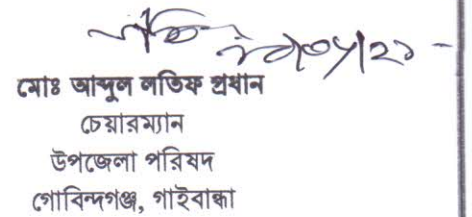 মোঃ আব্দুল লতিফ প্রধান
চেয়ারম্যান
উপজেলা পরিষদ
গোবিন্দগঞ্জ, গাইবান্ধা